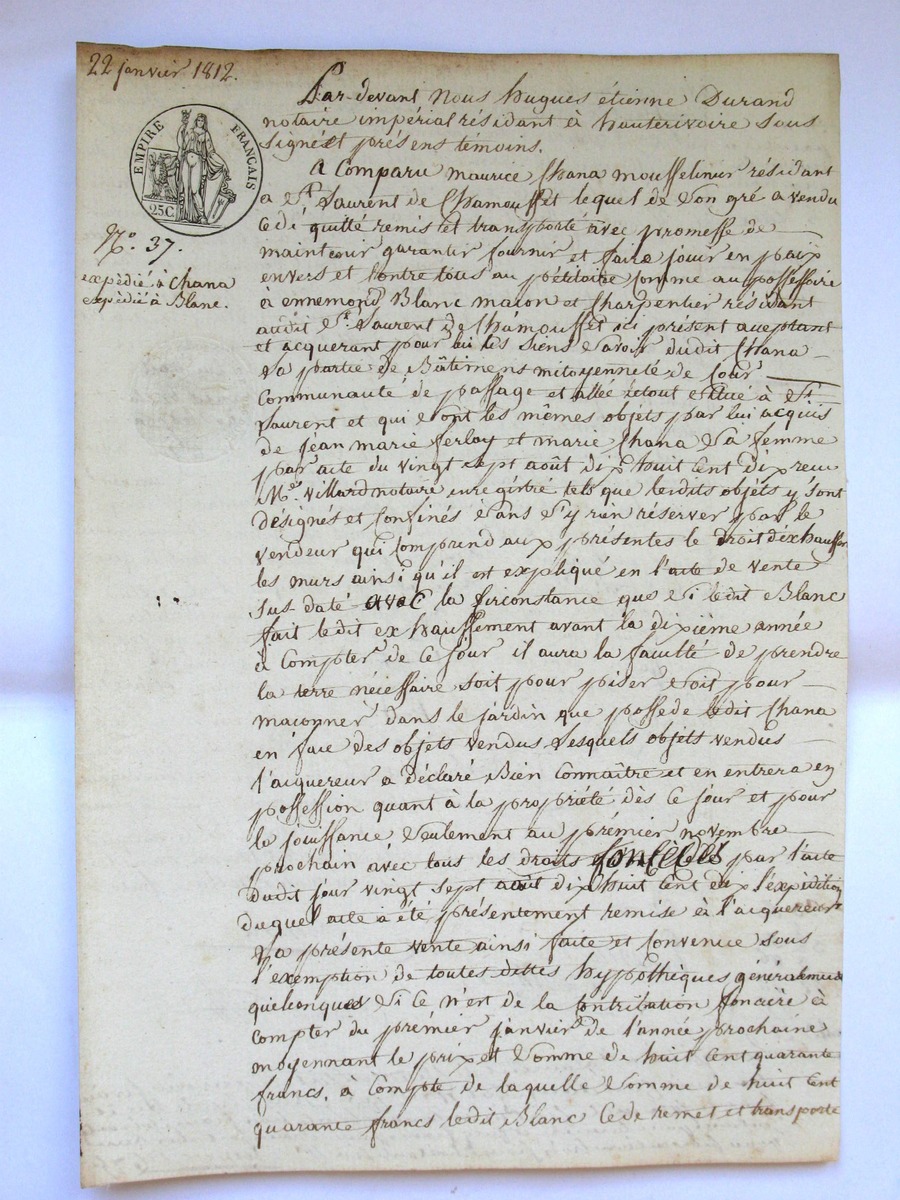 22 janvier 1812.
EMPIRE FRANÇAIS
25C
N.o 37.
expèdié à Chana
expèdié à Blanc.
Par-devant Nous hugues étienne Durand
notaire impérial résidant à hauterivoire sous
signé et présens témoins.
A Comparu maurice Chana mousselinier résidant
a St. Laurent de Chamousset lequel de son gré a vendu
cédé quitté remis et transporté avec promesse de
maintenir garantir fournir et faire jouir en paix
envers et contre tous au pétitoire comme au possessoire
a ennemond Blanc macon et Charpentier résidant
audit St. Laurent de Chamousset ici présent acceptant
et acquerant pour lui les siens savoir dudit Chana
sa partie de Bâtimens mitoyenneté de Cour
Communauté de passage et allée le tout situé à St.
Laurent et qui sont les mêmes objets par lui acquis
de jéan marie ferlay et marie Chana sa femme
par acte du vingt sept août dix huit Cent dix recu
Me. Villard notaire enregistré tels que lesdits objets y sont
désignés et Confinés sans s'y rien réserver par le
vendeur qui Comprend aux présentes le droit déxhausser
les murs ainsi qu'il est expliqué en l'acte de vente
sus daté avec la Circonstance que si ledit Blanc
fait ledit exhaussement avant la dixième année
à Compter de ce jour il aura la faculté de prendre
la terre nécessaire soit pour piser soit pour
maconner dans le jardin que possede ledit Chana
en face des objets vendus lesquels objets vendus
l'aiquereur a déclaré Bien Connaître et en entrera en
possession quant à la propriété dès ce jour et pour
la jouissance seulement au prémier novembre
prochain avec tous les droits Concédés par l'acte
dudit jour vingt sept aout dix huit Cent dix l'expédition
duquel acte a été présentement remise à l'acquereur
La présente vente ainsi faite et Convenue sous
l'exemption de toutes dettes hypothèques généralement
quelconques si ce n'est de la contribution fonciere à
compter du prémier janvier de l'année prochaine
moyennant le prix et somme de huit Cent quarante
francs, à Compte de laquelle somme de huit Cent
quarante francs ledit Blanc Cede remet et transporte